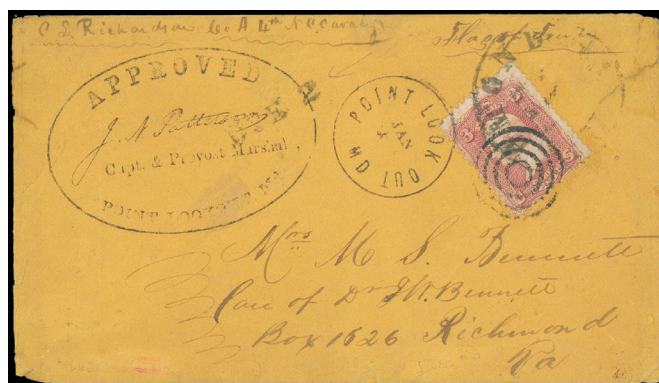 C. D. Richardson Co A 4th N.C. Cavalry
Flag of Truce
APPROVED
J. N. Patterson
Capt. & Provost Marshal,
POINT LOOKOUT, Md.
POINT LOOK OUT MD
JAN
3 3
Mrs M S. Bennett
Care of Dr J W. Bennett
Box 1626 Richmond
Va